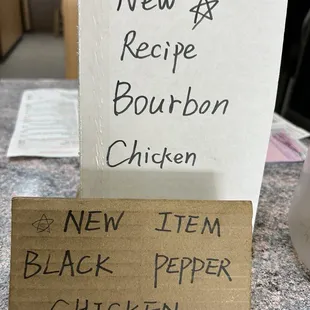 New ☆
Recipe
Bourbon
Chicken
☆ NEW ITEM
BLACK PEPPER
CHICKEN